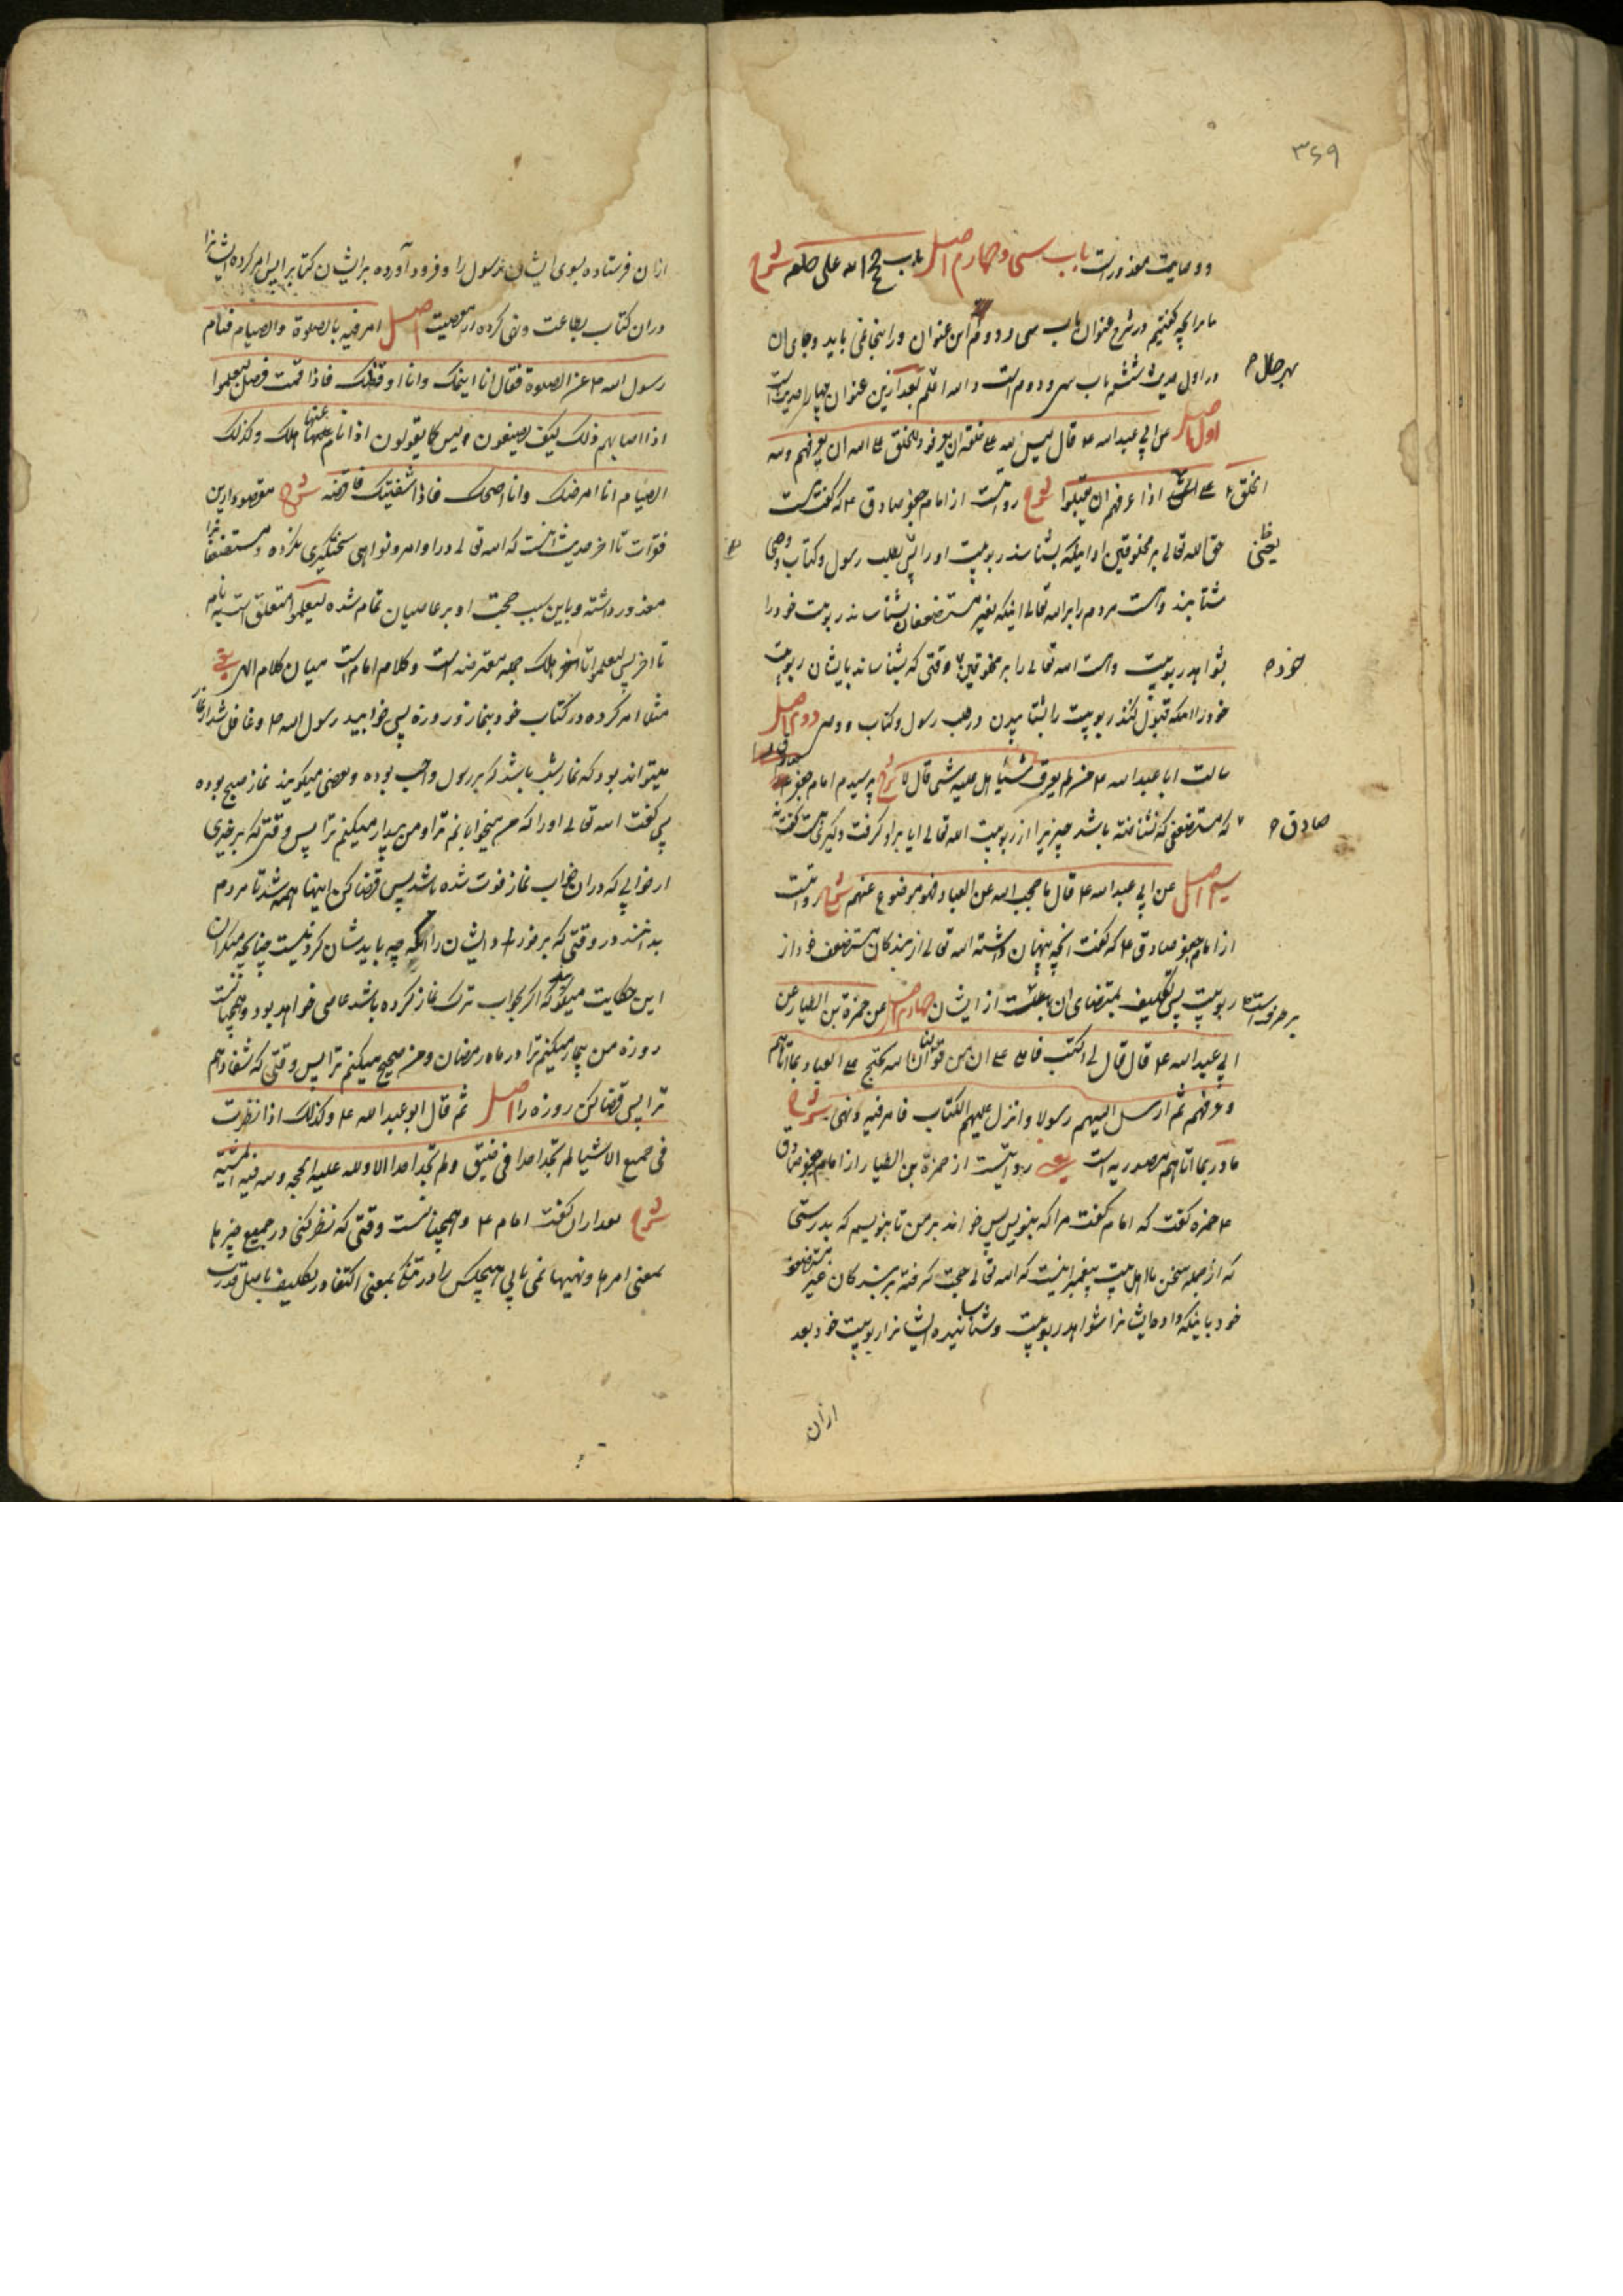 ۳۶۹
و وصایت معذورست باب سی و چهارم اصل باب حجج الله علی خلقه شرح
ما برآنچه گفتیم در شرح عنوان باب سی و دوم این عنوان در اینجا نمی باید و جای آن
در اول حدیث ششم باب سی و دوم است والله اعلم بعد ازین عنوان چهار حدیث است
بهر حال
اول اصل عن ابی عبد الله ع قال لیس لله علی خلقه ان یعرفوا و للخلق علی الله ان یعرفهم ولله
الخلق علی اذا عرفهم ان یقبلوا شرح روایت است از امام جعفر صادق ع که گفت نیست
حق الله تعالی بر مخلوقین او اینکه بشناسند ربوبیت او را پس بطلب رسول و کتاب و وصی
شتابند و هست مردم را بر الله تعالی اینکه بغیر مستضعفان بشناساند ربوبیت خود را
بشواهد ربوبیت و هست الله تعالی را بر مخلوقین وقتی که بشناساند بایشان ربوبیت
خود
خود را اینکه قبول کنند ربوبیت را بشتابیدن در طلب رسول و کتاب و وصی دوم اصل
سالت ابا عبد الله ع من لم یعرف شیئا هل علیه شی قال لا شرح پرسیدم امام جعفر
صادق
که مستضعفی که نشناخته باشد چیزیرا از ربوبیت الله تعالی ایا بر او گرفت و گیری هست گفت نه
سیم اصل عن ابی عبد الله ع قال ما حجب الله عن العباد فهو موضوع عنهم شرح روایت است
از امام جعفر صادق ع که گفت آنچه پنهان داشته الله تعالی از بندگان مستضعف خود از
ربوبیت پس تکلیف بمقتضای آن برطرفست از ایشان چهارم اصل عن حمزة بن الطیار عن
ابی عبد الله ع قال قال لی اکتب فاملی علی ان من قولنا ان الله یحتج علی العباد بما آتاهم
و عرفهم ثم ارسل الیهم رسولا و انزل علیهم الکتاب فامر فیه و نهی شرح
ما در بما آتاهم مصدریه است یعنی روایتست از حمزة بن الطیار از امام جعفر صادق
ع حمزه گفت که امام گفت مرا که بنویس پس خواند بر من تا بنویسم که بدرستی
که از جمله سخن ما اهل بیت پیغمبر اینست که الله تعالی حجت گرفته بر بندگان غیر مستضعف
خود باینکه داده ایشانرا شواهد ربوبیت و شناسانیده ایشانرا ربوبیت خود بعد
ازان
ازان فرستاده بسوی ایشان رسول را و فرود آورده بر ایشان کتاب را پس امر کرده ایشانرا
دران کتاب بطاعت و نهی کرده از معصیت اصل امر فیه بالصلوة والصیام فنام
رسول الله ص عن الصلوة فقال انا انیمک وانا اوقظک فاذا قمت فصل لیعلموا
اذا اصابهم ذلک کیف یصنعون لیس کما یقولون اذا نام عنها هلک وکذلک
الصیام انا امرضک وانا اصحک فاذا شفیتک فاقضه شرح مقصود ازین
فقرات تا آخر حدیث اینست که الله تعالی در اوامر و نواهی سختگیری نکرده و مستضعفانرا
معذور داشته و باین سبب حجت او بر عاصیان تمام شده لیعلموا متعلق است به نام
تا آخر پس لیعلموا تا هلک جمله معترضه است و کلام امام است میان کلام الهی یعنی
مثلا امر کرده در کتاب خود بنماز و روزه پس خوابید رسول الله ص و غافل شد از نماز
میتواند بود که نماز شب باشد که بر رسول واجب بوده و بعضی میگویند نماز صبح بوده
پس گفت الله تعالی او را که من میخوابانم ترا و من بیدار میکنم ترا پس وقتی که برخیزی
از خوابی که دران خواب نماز فوت شده باشد پس قضا کن اینها همه شد تا مردم
بدانند در وقتی که برخورد ایشان را آنکه چه باید شان کرد نیست چنانچه میگویند
این حکایت میگوید که اگر بخواب ترک نماز کرده باشد عاصی خواهد بود و همچنانست
روزه من بیمار میکنم ترا در ماه رمضان و من صحیح میکنم ترا پس وقتی که شفا دهم
ترا پس قضا کن روزه را اصل ثم قال ابو عبد الله ع وکذلک اذا نظرت
فی جمیع الاشیا لم تجد احدا فی ضیق ولم تجد احدا الا ولله علیه الحجة ولله فیه المشیة
شرح بعد ازان گفت امام ع و همچنانست وقتی که نظر کنی در جمیع چیزها
بمعنی امرها و نهیها نمی یابی هیچکس را در تنگی بمعنی اکتفا در تکلیف باصل قدرت